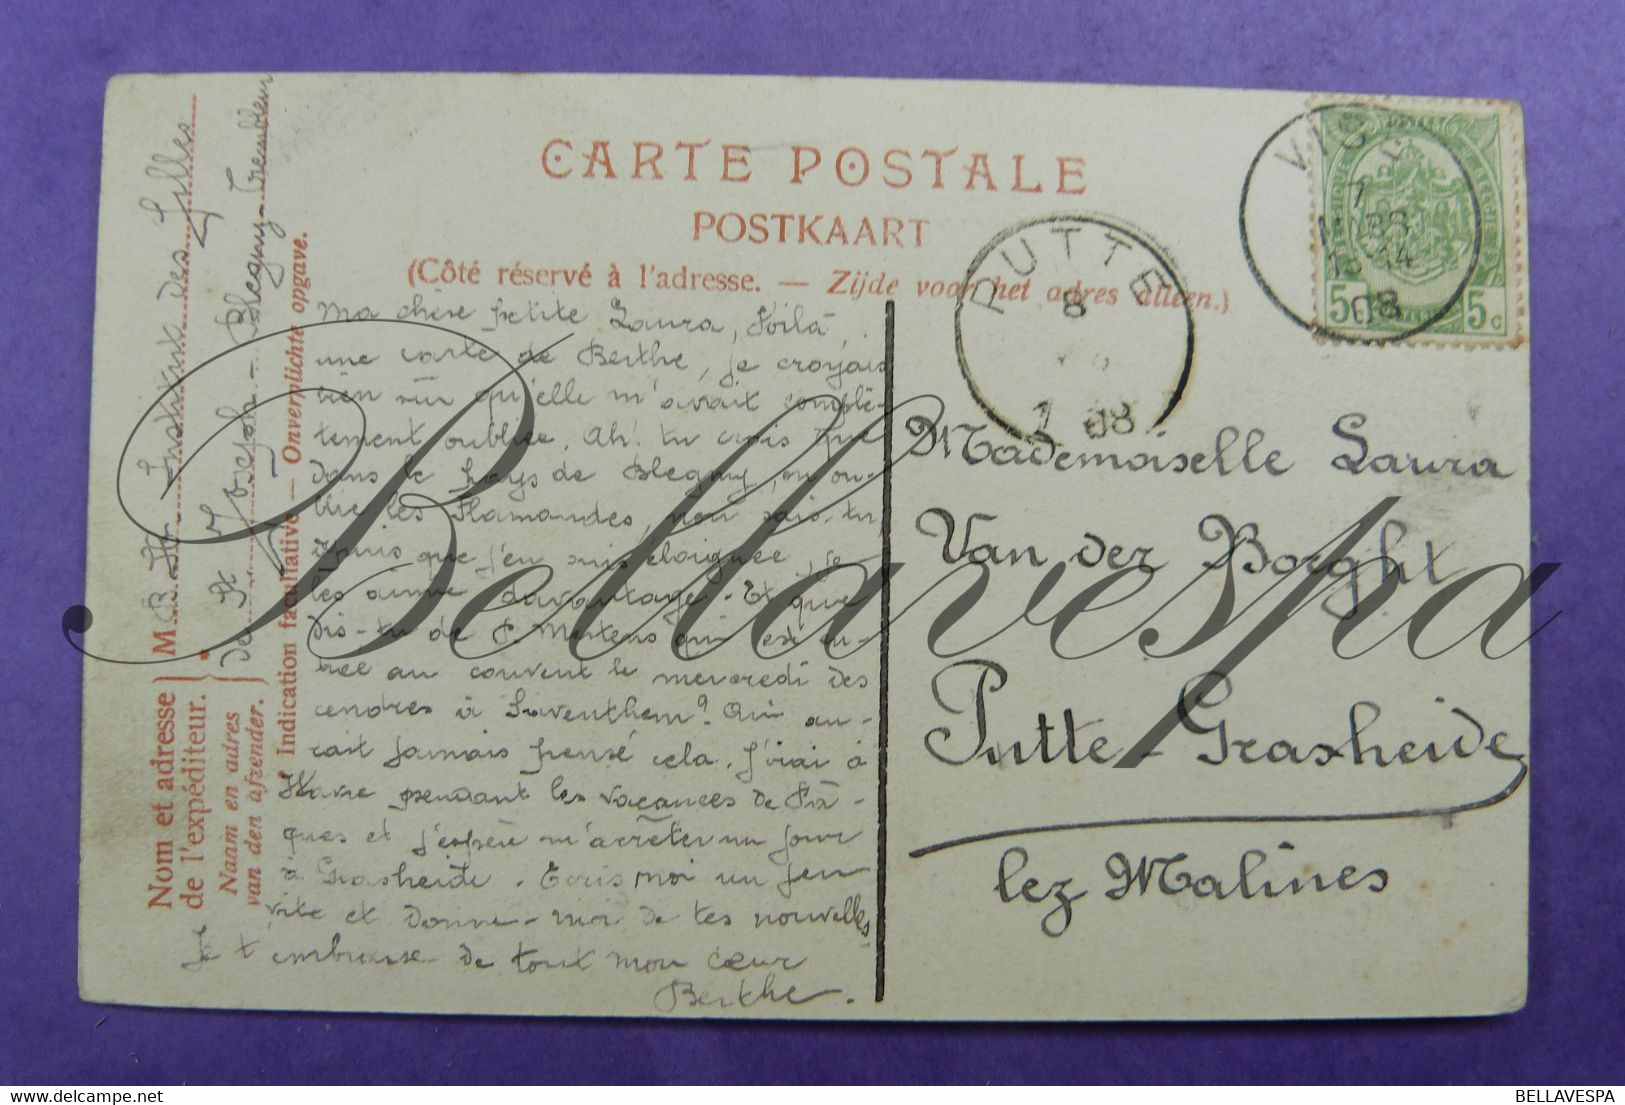 CARTE POSTALE
POSTKAART
(Côté réservé à l'adresse. — Zijde voor het adres alleen.)
Nom et adresse
de l'expéditeur.
Naam en adres
van den afzender.
M
Institut des Filles
de St Joseph - Blegny-Trembleur
* Indication facultative — Onverplichte opgave.
Ma chère petite Laura, Voilà
une carte de Berthe, je croyais
bien sûr qu'elle m'avait complè-
tement oubliée. Ah! tu crois que
dans le pays de Blegny, on ou-
blie les Flamandes, non sais-tu,
depuis que j'en suis éloignée, je
les aime davantage. Et que
dis-tu de Mertens qui est en-
trée au couvent le mercredi des
cendres à Saventhem? Qui au-
rait jamais pensé cela. J'irai à
Wavre pendant les vacances de Pâ-
ques et j'espère m'arrêter un jour
à Grasheide. Ecris moi un peu
vite et donne-moi de tes nouvelles
je t'embrasse de tout mon cœur
Berthe.
PUTTE
8
1 08
VIS
7
13-14
08
5
5 c
Mademoiselle Laura
Van der Borght
Putte-Grasheide
lez Malines
Bellavespa
BELLAVESPA